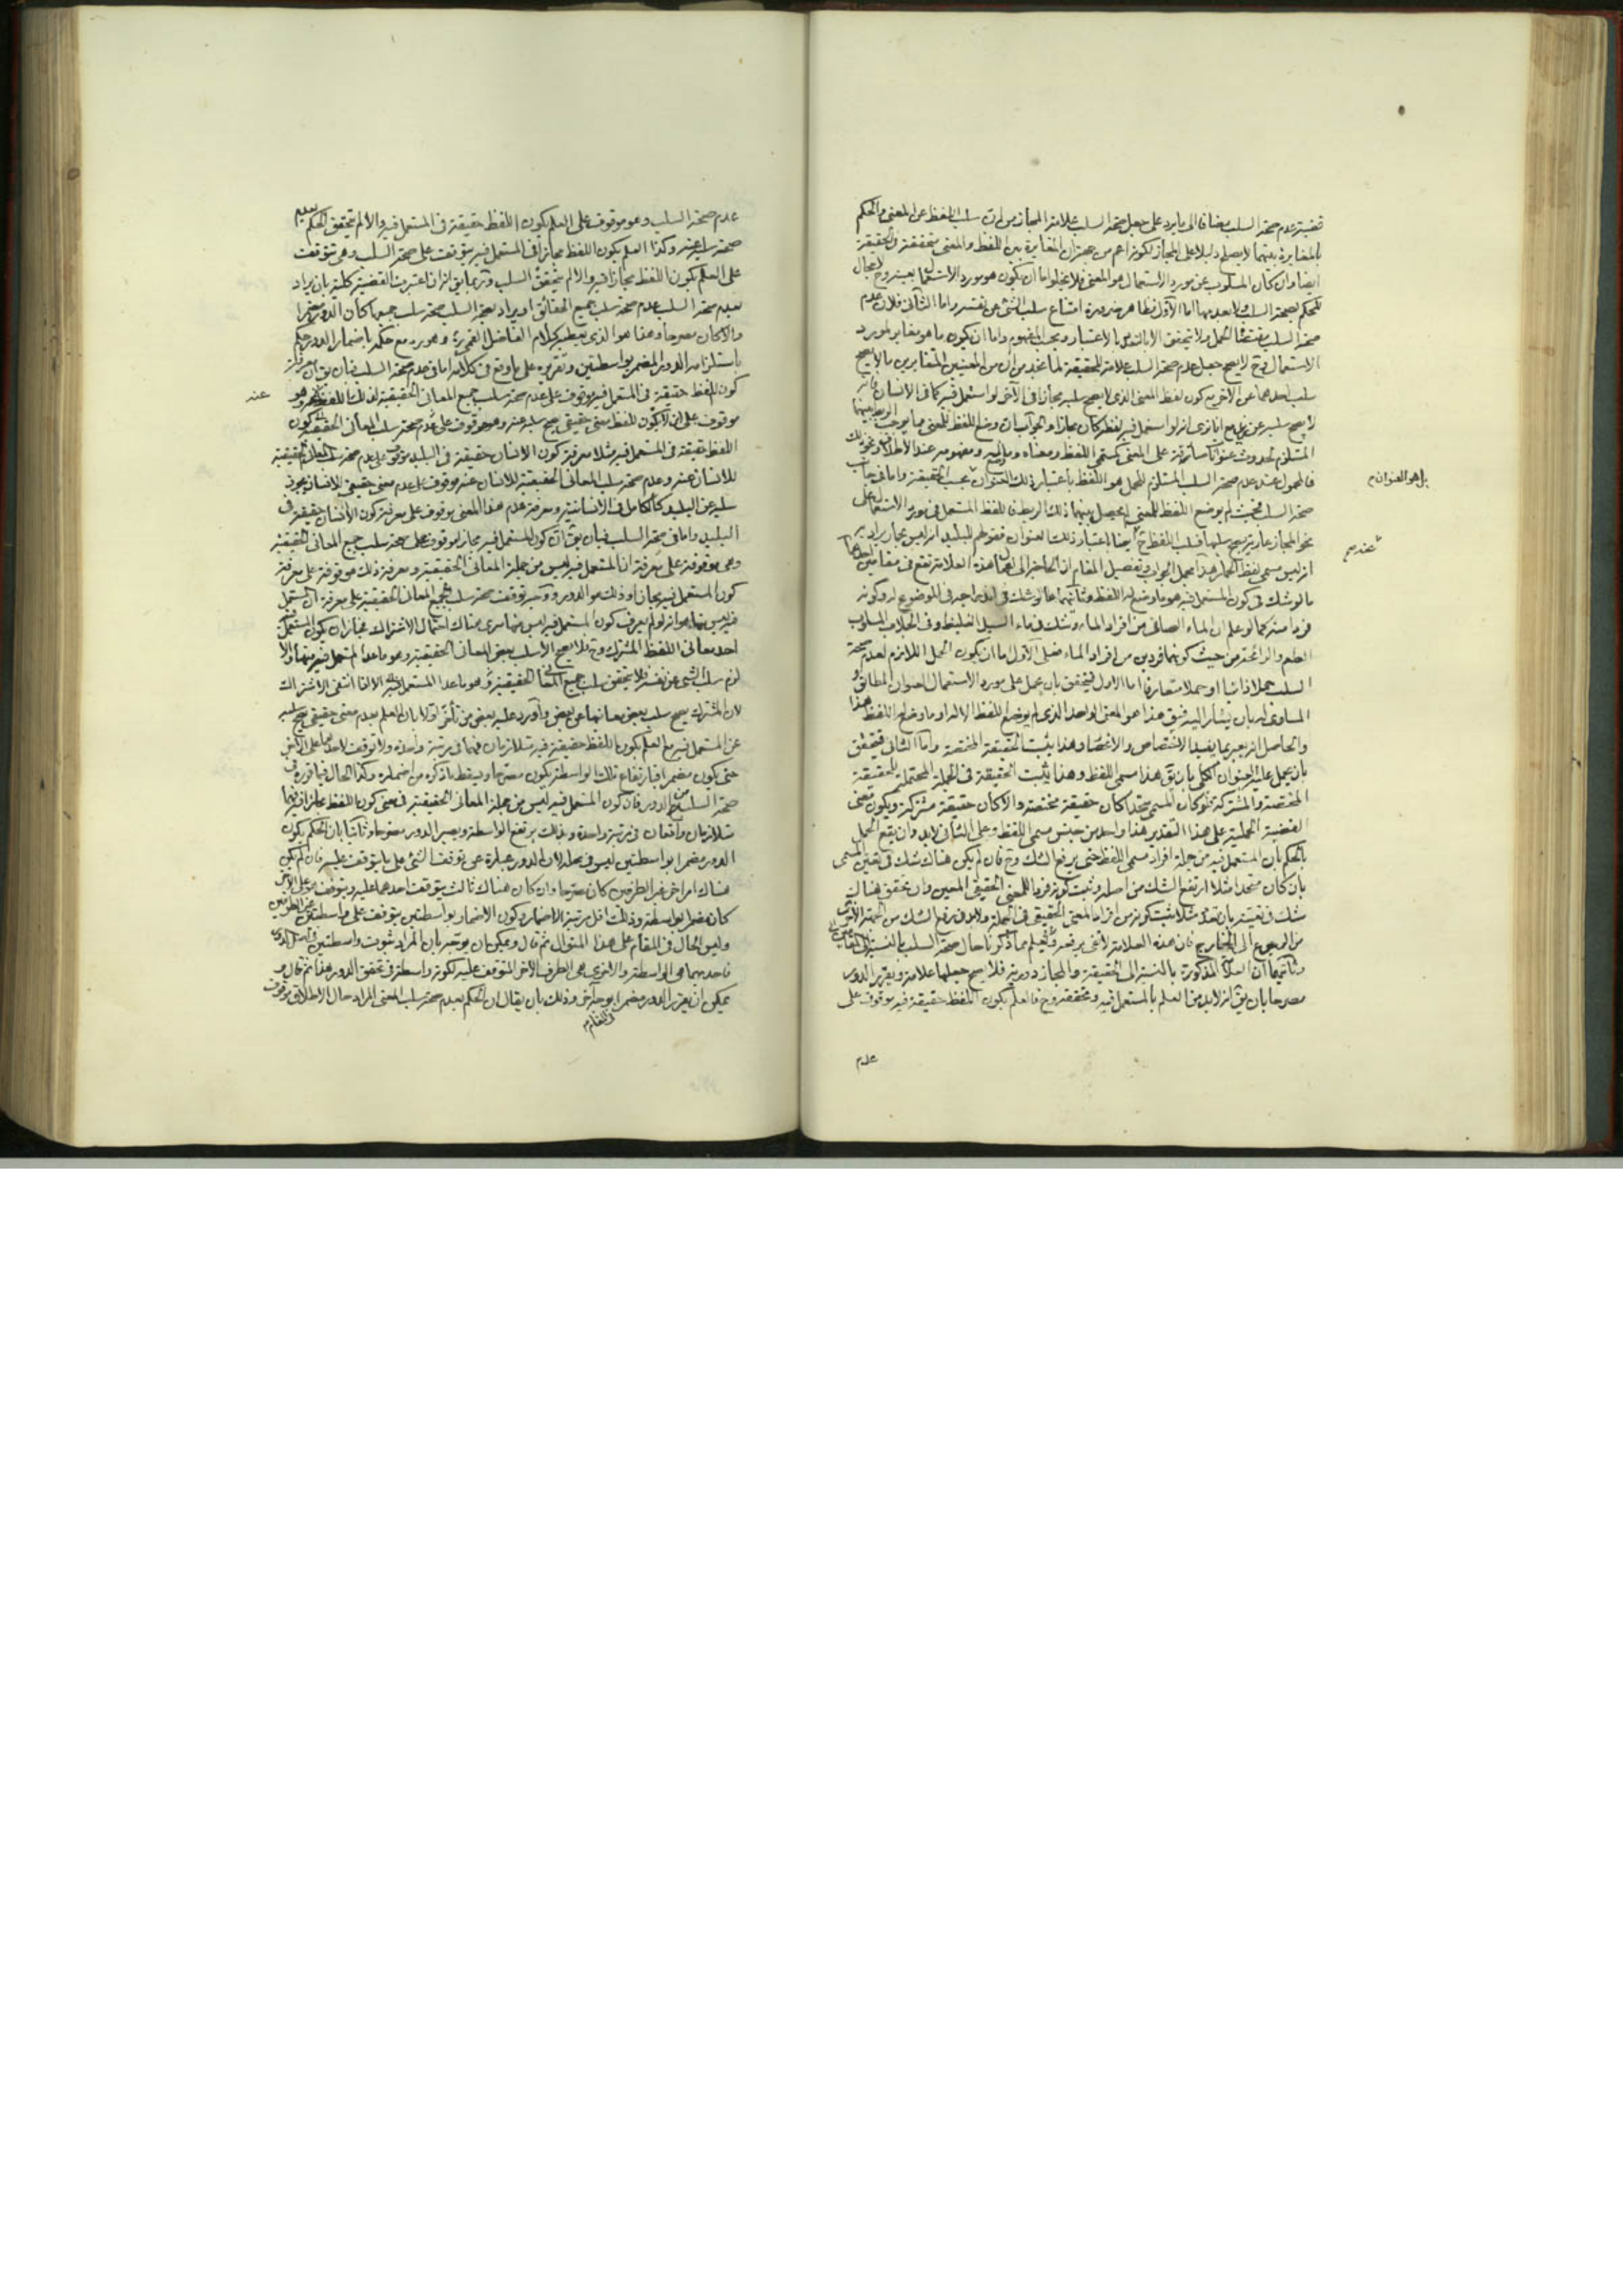 قضية عدم صحة السلب مضافا الى ما يرد على جعل صحة السلب علامة المجاز من ان سلب اللفظ عن المعنى والحكم
بالمغايرة بينهما لا يصلح دليلا على المجاز لكونه اعم من جهة ان المغايرة بين اللفظ والمعنى متحققة في الحقيقة
ايضا وان كان المسلوب عن مورد الاستعمال هو المعنى فلا يخلوا اما ان يكون هو مورد الاستعمال بعينه وح لا مجال
للحكم بصحة السلب ولا بعدمها اما الاول فظاهر ضرورة امتناع سلب الشئ عن نفسه واما الثانى فلان عدم
صحة السلب يقتضى الحمل ولا يتحقق الا بالتغاير بالاعتبار وبحسب المفهوم واما ان يكون ما هو مغاير لمورد
الاستعمال وح لا يصح جعل عدم صحة السلب علامة للحقيقة لما نجد من ان من المعنيين المتغايرين ما لا يصح
سلب احدهما عن الاخر مع كون لفظ المعنى الذى لا يصح سلبه مجازا فى الآخر لو استعمل فيه كما فى الانسان فانه
لا يصح سلبه عن زيد مع انا نرى انه لو استعمل فيه لفظه كان مجازا والجواب ان وضع اللفظ للمعنى مما يوجب الربط بينهما
المستلزم لحدوث عنوانات صادقة على المعنى كمسمى اللفظ ومعناه وما وضع له ومفهومه عند الاطلاق ونحو ذلك
فالمحمول عند عدم صحة السلب المستلزم للحمل هو اللفظ باعتبار ذلك العنوان بحسب الحقيقة واما فى جانب
بل هو العنوان م
صحة السلب فحيث لم يوضع اللفظ للمعنى لم يحصل بينهما ذلك الربط فاللفظ المستعمل فى مورد الاستعمال على
نحو المجاز عارية يصح سلبها فسلب اللفظ ح ايضا باعتبار ذلك العنوان فقولهم للبليد انه ليس بحمار يراد به
انه ليس مسمى لفظ الحمار هذا مجمل الجواب وتفصيل المقام ان الحاجة الى هذه العلامة تقع فى مقامين احدهما
ما لو شك فى كون المستعمل فيه هو ما وضع له اللفظ وثانيهما ما لو شك فى اندراجه فى الموضوع له وكونه
فردا منه كما لو علم ان الماء الصافى من افراد الماء وشك فى ماء السيل الغليظ وفى الجلاب المسلوب
الطعم والرائحة من حيث كونهما فردين من افراد الماء فعلى الاول اما ان يكون الحمل اللازم لعدم صحة
السلب حملا ذاتيا او حملا متعارفا اما الاول فيتحقق بان يحمل على مورد الاستعمال العنوان المطابق
المساوى له بان يشار اليه فيق هذا هو المعنى الواحد الذى لم يوضع اللفظ الا له او ما وضع له اللفظ هذا
والحاصل انه يعبر بما يفيد الاختصاص والانحصار وهذا يثبت الحقيقة المختصة واما الثانى فيتحقق
بان يحمل عليه العنوان الكلى بان يق هذا مسمى اللفظ وهذا يثبت الحقيقة فى الجملة المحتملة للحقيقة
المختصة والمشتركة فلو كان المسمى متحدا كان حقيقة مختصة والا كان حقيقة مشتركة ويكون معنى
القضية الحملية على هذا التقدير هذا واحد من جنس مسمى اللفظ وعلى الثانى لابد وان يقع الحمل
بالحكم بان المستعمل فيه من جملة افراد مسمى اللفظ حتى يرفع الشك وح فان لم يكن هناك شك فى تعيين المسمى
بان كان متحدا مثلا ارتفع الشك من اصله وثبت كونه فردا للمعنى الحقيقى المعين وان تحقق هناك
شك فى تعيينه بان تعدد مثلا يثبت كونه من افراد المعنى الحقيقى فى الجملة ولابد فى رفع الشك من الجهة الاخرى
من الرجوع الى الخارج فان هذه العلامة لا تفى برفعه وقد يعلم مما ذكرنا حال صحة السلب بالنسبة الى المقامين
وثانيهما ان العلامة المذكورة بالنسبة الى الحقيقة والمجاز دورية فلا يصح جعلها علامة وتقرير الدور
مصرحا بان يق انه لابد من العلم بالمستعمل فيه وتحققه وح فالعلم بكون اللفظ حقيقة فيه موقوف على
عدم
عدم صحة السلب وهو موقوف على العلم بكون اللفظ حقيقة فى المستعمل فيه والا لم يتحقق الحكم بعدم
صحة سلبه عنه وكذا العلم بكون اللفظ مجازا فى المستعمل فيه يتوقف على صحة السلب وهى تتوقف
على العلم بكون اللفظ مجازا فيه والا لم يتحقق السلب وربما يق انه ان اعتبرت القضية كلية بان يراد
بعدم صحة السلب عدم صحة سلب جميع الحقائق او يراد بصحة السلب صحة سلب جميعها كان الدور مضمرا
والا كان مصرحا وهذا هو الذى يعطيه كلام الفاضل القمى ره وهو ره مع حكمه باضمار الدور حكم
باستلزامه الدور المضمر بواسطتين وتقريره على ما وقع فى كلامه اما فى عدم صحة السلب فبان يق ان معرفة
كون اللفظ حقيقة فى المستعمل فيه موقوف على عدم صحة سلب جميع المعانى الحقيقية لذلك اللفظ وهو
عنه
موقوف على ان لا يكون للفظ معنى حقيقى يصح سلبه عنه وهو موقوف على
اللفظ حقيقة فى المستعمل فيه مثلا معرفة كون الانسان حقيقة فى البليد موقوف على عدم صحة سلب المعانى الحقيقية
للانسان عنه وعدم صحة سلب المعانى الحقيقية للانسان عنه موقوف على عدم معنى حقيقى للانسان يجوز
سلبه عن البليد كالكامل فى الانسانية ومعرفة عدم هذا المعنى موقوف على معرفة كون الانسان حقيقة فى
البليد واما فى صحة السلب فبان يق ان كون المستعمل فيه مجازا موقوف على صحة سلب جميع المعانى الحقيقية
وهى موقوفة على معرفة ان المستعمل فيه ليس من جملة المعانى الحقيقية ومعرفة ذلك موقوفة على معرفة
كون المستعمل فيه مجازا وذلك هو الدور ووجه توقف صحة سلب جميع المعانى الحقيقية على معرفة ان المستعمل
فيه ليس منها هو انه لو لم يعرف كون المستعمل فيه ليس منها سرى هناك احتمال الاشتراك فجاز ان يكون المستعمل فيه
احد معانى اللفظ المشترك وح فلا يصح الا سلب بعض المعانى الحقيقية وهو ما عدا المستعمل فيه منها والا
لزم سلب الشئ عن نفسه فلا يتحقق سلب جميع المعانى الحقيقية
لان المشترك يصح سلب بعض معانيها عن بعض واورد عليه بعض من تأخر اولا بان العلم بعدم معنى حقيقى يصح سلبه
عن المستعمل فيه مع العلم بكون اللفظ حقيقة فيه متلازمان فهما فى مرتبة واحدة ولا توقف لاحدهما على الاخر
حتى يكون مضمرا فبارتفاع تلك الواسطة يكون مصرحا ويسقط ما ذكره من اضماره وكذا الحال فيما قرره فى
صحة السلب من الدور فان كون المستعمل فيه ليس من جملة المعانى الحقيقية فى معنى كون اللفظ مجازا فيه فهما
متلازمان واقعان فى مرتبة واحدة وبذلك يرتفع الواسطة ويصير الدور مصرحا وثانيا بان الحكم بكون
الدور مضمرا بواسطتين ليس فى محله لان الدور عبارة عن توقف الشئ على ما يتوقف عليه فان لم يكن
هناك امر اخر غير الطرفين كان مصرحا وان كان هناك ثالث يتوقف احدهما عليه ويتوقف هو على الاخر
كان مضمرا بواسطة وذلك اقل مرتبة الاضمار وكون الاضمار بواسطتين يتوقف على واسطتين غير الطرفين
وليس الحال فى المقام على هذا المنوال ثم قال ويمكن ان يوجه بان المراد ثبوت واسطتين فى اصل الدور
فاحديهما هى الواسطة والاخرى هى الطرف الاخر المتوقف عليه لكونه واسطة فى تحقق الدور هذا ثم قال هو
يمكن ان يقرر الدور مضمرا بوجه آخر وذلك بان يقال ان الحكم بعدم صحة سلب المعنى المراد حال الاطلاق موقوف